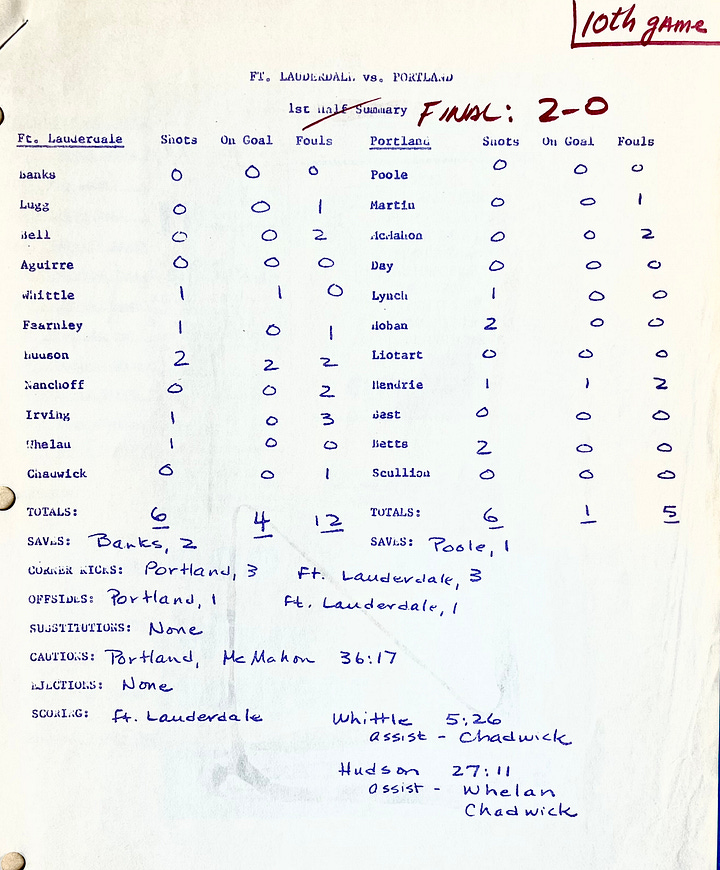 10th game
FT. LAUDERDALE vs. PORTLAND
1st Half Summary FINAL: 2-0
Ft. Lauderdale Shots On Goal Fouls Portland Shots On Goal Fouls
Banks 0 0 0 Poole 0 0 0
Lugg 0 0 1 Martin 0 0 1
Bell 0 0 2 McMahon 0 0 2
Aguirre 0 0 0 Day 0 0 0
Whittle 1 1 0 Lynch 1 0 0
Fearnley 1 0 1 Hoban 2 0 0
Hudson 2 2 2 Liotart 0 0 0
Nanchoff 0 0 2 Hendrie 1 1 2
Irving 1 0 3 Best 0 0 0
Whelan 1 0 0 Betts 2 0 0
Chadwick 0 0 1 Scullion 0 0 0
TOTALS: 6 4 12 TOTALS: 6 1 5
SAVES: Banks, 2 SAVES: Poole, 1
CORNER KICKS: Portland, 3 Ft. Lauderdale, 3
OFFSIDES: Portland, 1 Ft. Lauderdale, 1
SUBSTITUTIONS: None
CAUTIONS: Portland, McMahon 36:17
EJECTIONS: None
SCORING: Ft. Lauderdale Whittle 5:26
assist - Chadwick
Hudson 27:11
assist - Whelan
Chadwick